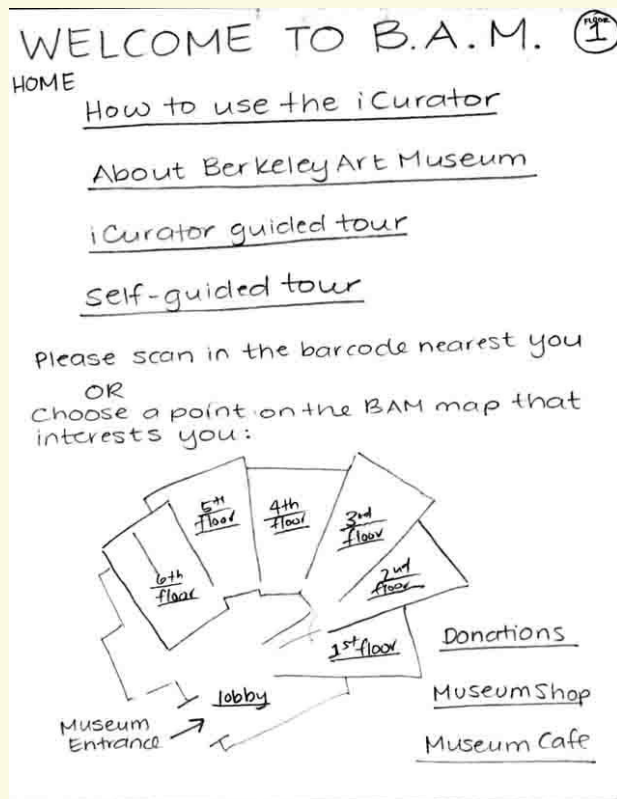 WELCOME TO B.A.M.
FLOOR
1
HOME
How to use the iCurator
About Berkeley Art Museum
iCurator guided tour
self-guided tour
Please scan in the barcode nearest you
OR
Choose a point on the BAM map that
interests you:
5th
floor
4th
floor
3rd
floor
6th
floor
2nd
floor
1st floor
Donations
lobby
Museum Shop
Museum
Entrance
Museum Cafe